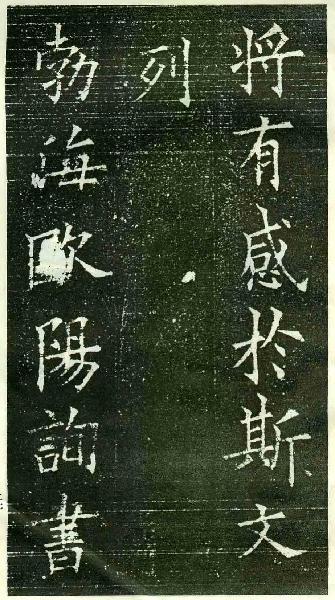 将有感於斯文
列
勃海歐陽詢書